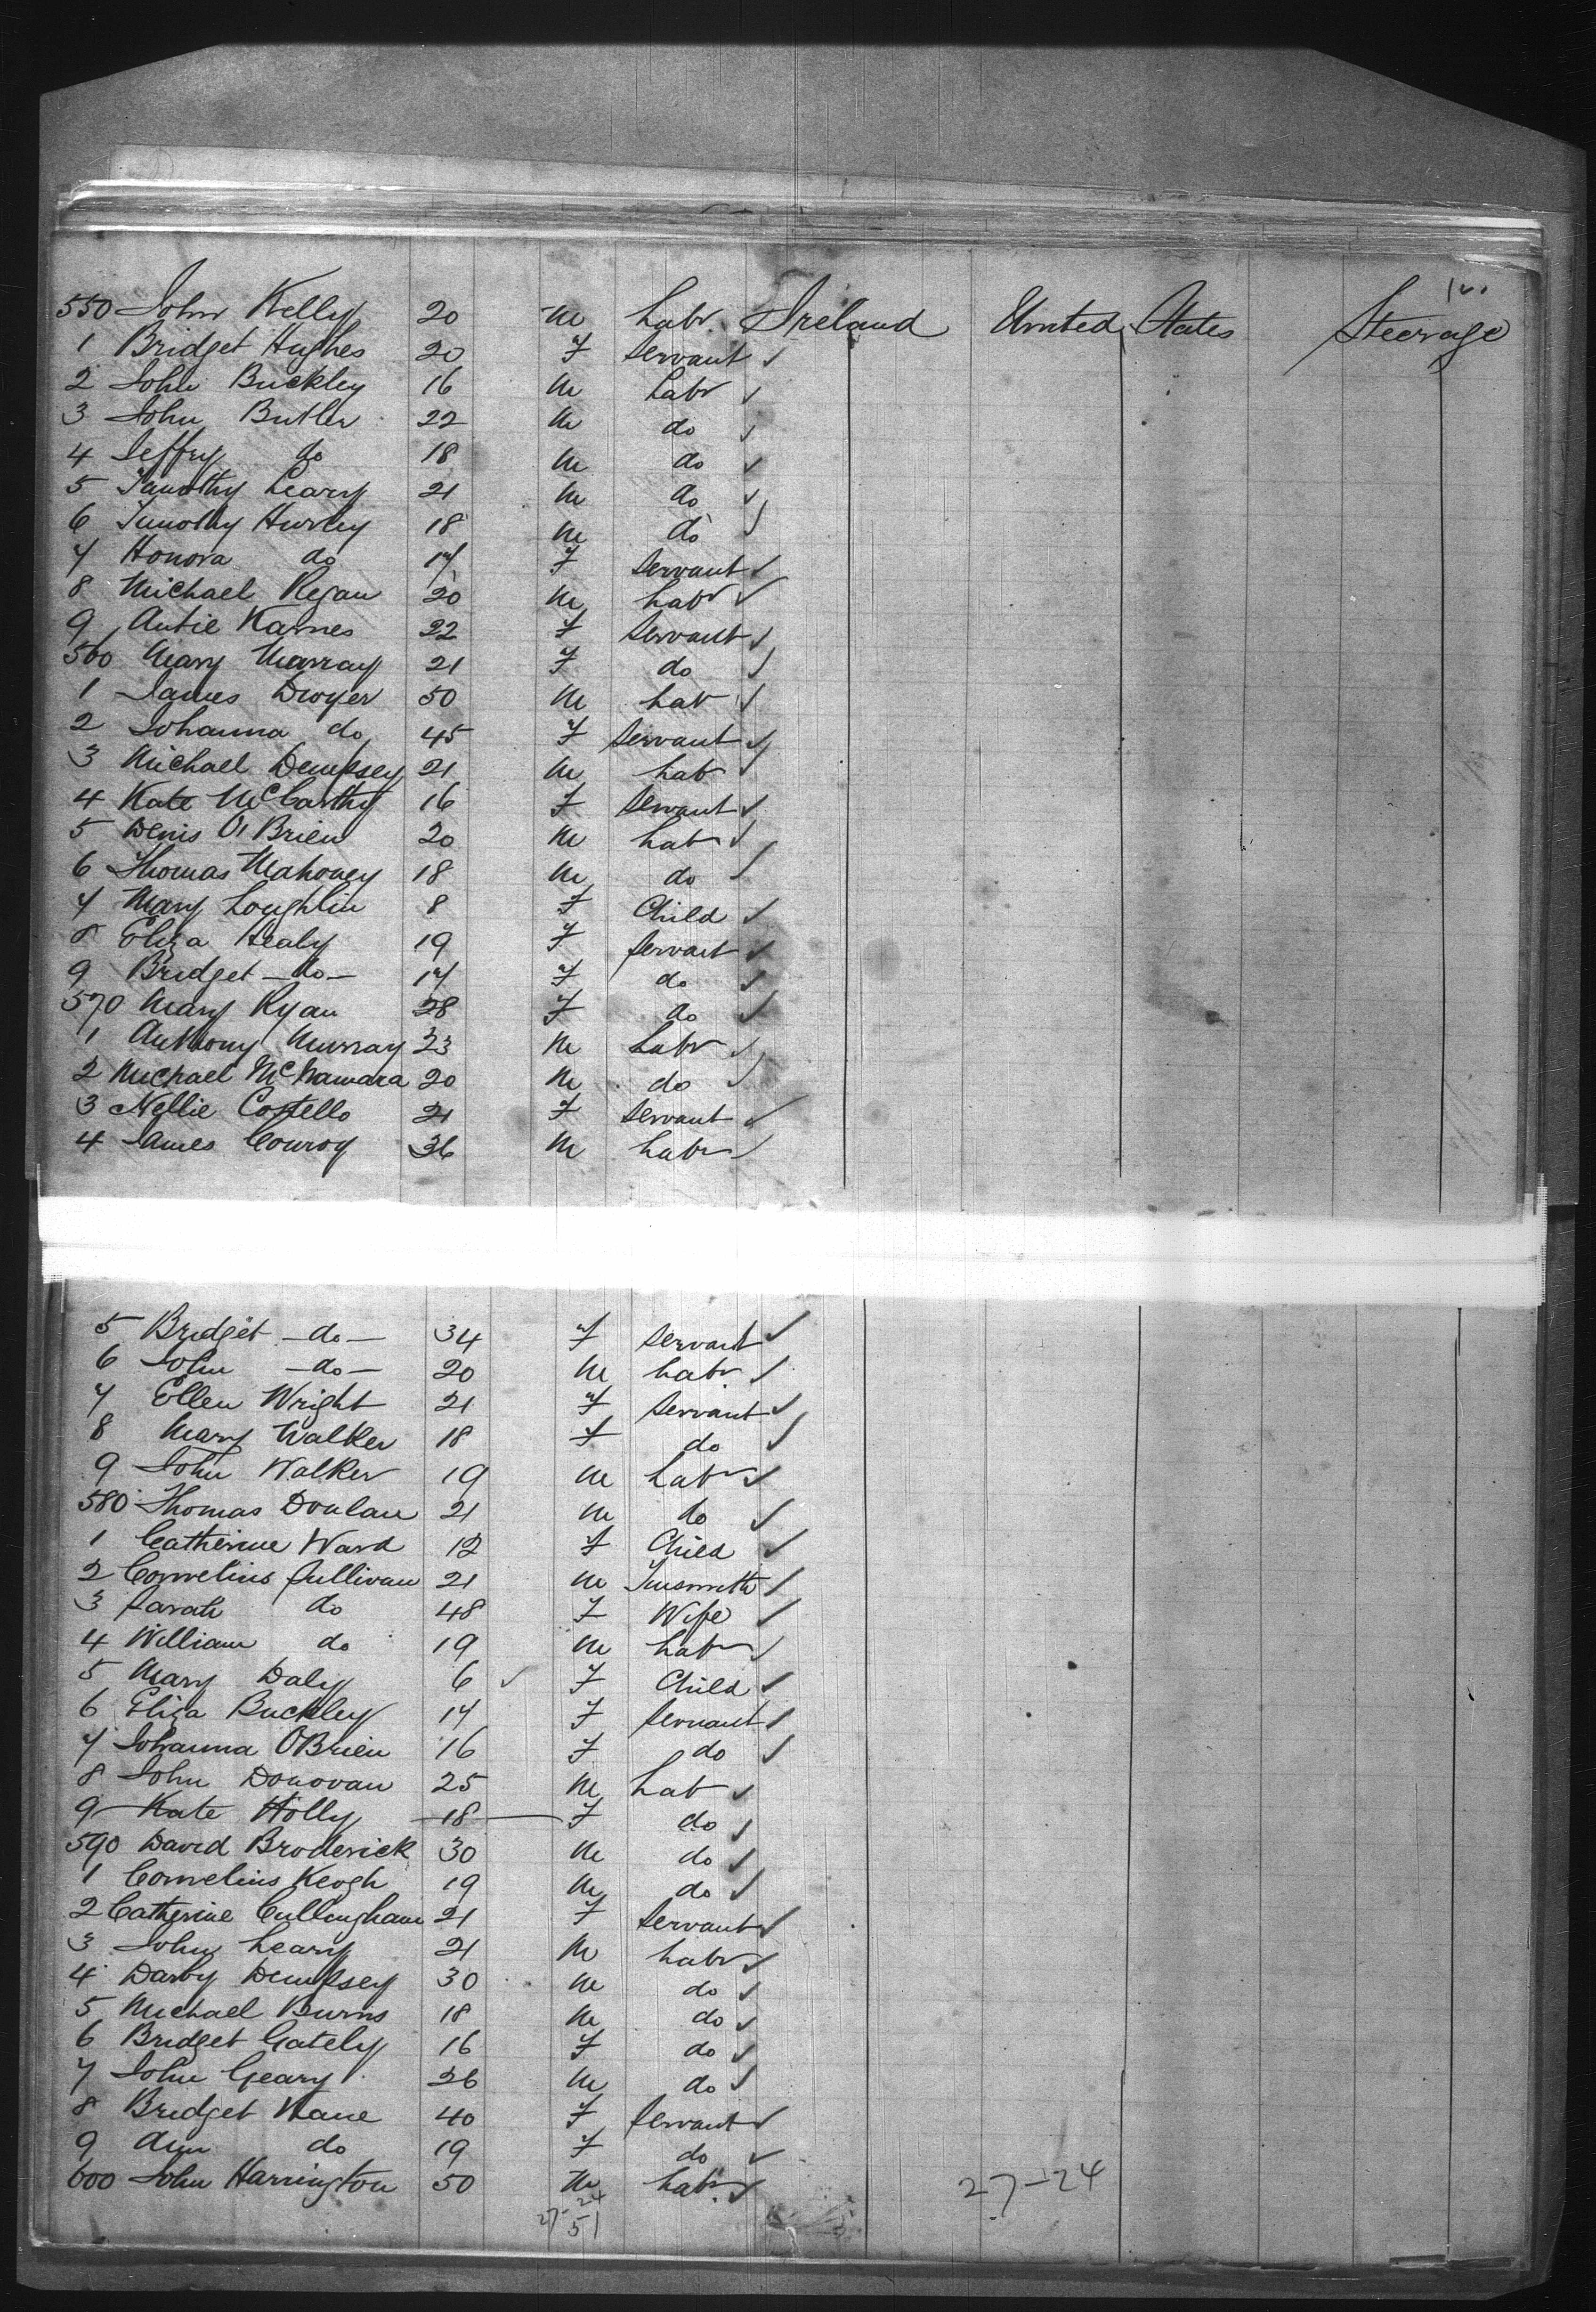 121
550 John Kelly 20 m Labr. Ireland United States Steerage
1 Bridget Hughes 20 F Servant ✓
2 John Buckley 16 m Labr ✓
3 John Butler 22 m do ✓
4 Jeffry do 18 m do ✓
5 Timothy Leary 21 m do ✓
6 Timothy Hurley 18 m do ✓
7 Honora do 17 F Servant ✓
8 Michael Regan 20 m Labr ✓
9 Antie Karnes 22 F Servant ✓
560 Mary Murray 21 F do ✓
1 James Dwyer 50 m Lab ✓
2 Johanna do 45 F Servant ✓
3 Michael Dempsey 21 m Lab ✓
4 Kate McCarthy 16 F Servant ✓
5 Denis O'Brien 20 m Lab ✓
6 Thomas Mahoney 18 m do ✓
7 Mary Loughlin 8 F Child ✓
8 Eliza Healy 19 F Servant ✓
9 Bridget -do- 17 F do ✓
570 Mary Ryan 28 F do ✓
1 Anthony Murray 23 m Labr ✓
2 Michael McNamara 20 m do ✓
3 Nellie Costello 21 F Servant ✓
4 James Conroy 36 m Labr ✓
5 Bridget -do- 34 F Servant ✓
6 John -do- 20 m Labr ✓
7 Ellen Wright 21 F Servant ✓
8 Mary Walker 18 F do ✓
9 John Walker 19 m Labr ✓
580 Thomas Donlan 21 m do ✓
1 Catherine Ward 12 F Child ✓
2 Cornelius Sullivan 21 m Tinsmith ✓
3 Sarah do 48 F Wife ✓
4 William do 19 m Labr ✓
5 Mary Daly 6 ✓ F Child ✓
6 Eliza Buckley 17 F Servant ✓
7 Johanna O'Brien 16 F do ✓
8 John Donovan 25 m Lab ✓
9 Kate Holly 18 F do ✓
590 David Broderick 30 m do ✓
1 Cornelius Keogh 19 m do ✓
2 Catherine Cullingham 21 F Servant ✓
3 John Leary 21 m Labr ✓
4 Darby Dempsey 30 m do ✓
5 Michael Burns 18 m do ✓
6 Bridget Gately 16 F do ✓
7 John Geary 26 m do ✓
8 Bridget Kane 40 F Servant ✓
9 Ann do 19 F do ✓
600 John Harrington 50 m Labr. ✓
27-24
27-24
51